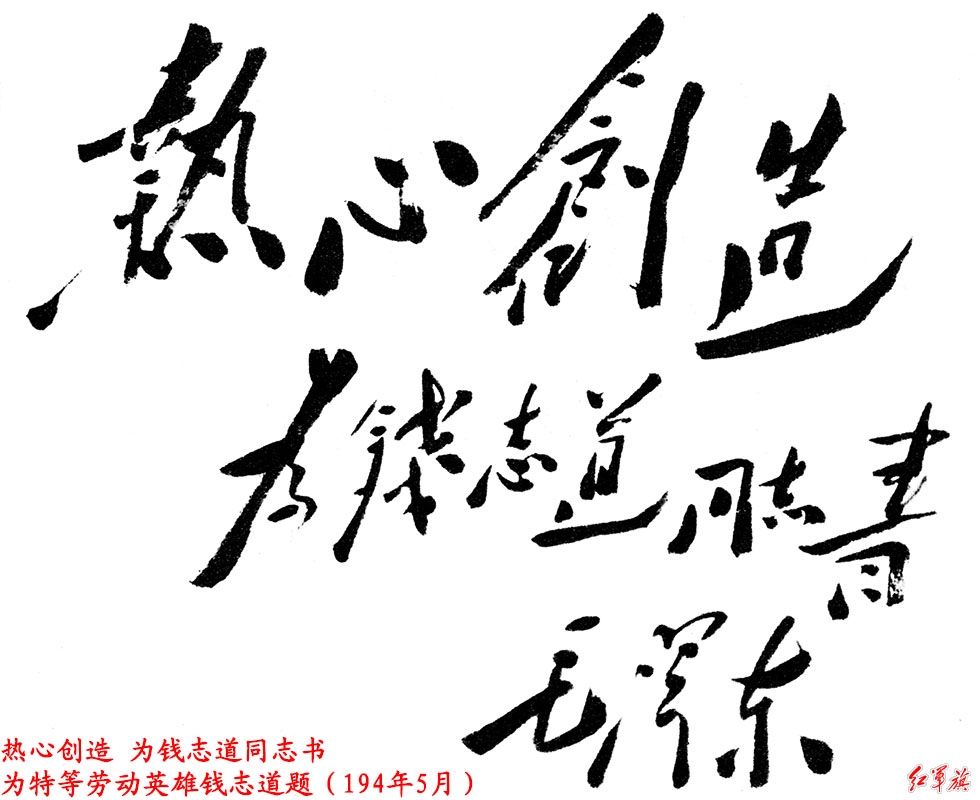 熱心創造
为錢志道同志書
毛澤东
热心创造 为钱志道同志书
为特等劳动英雄钱志道题（194年5月）
红军旗